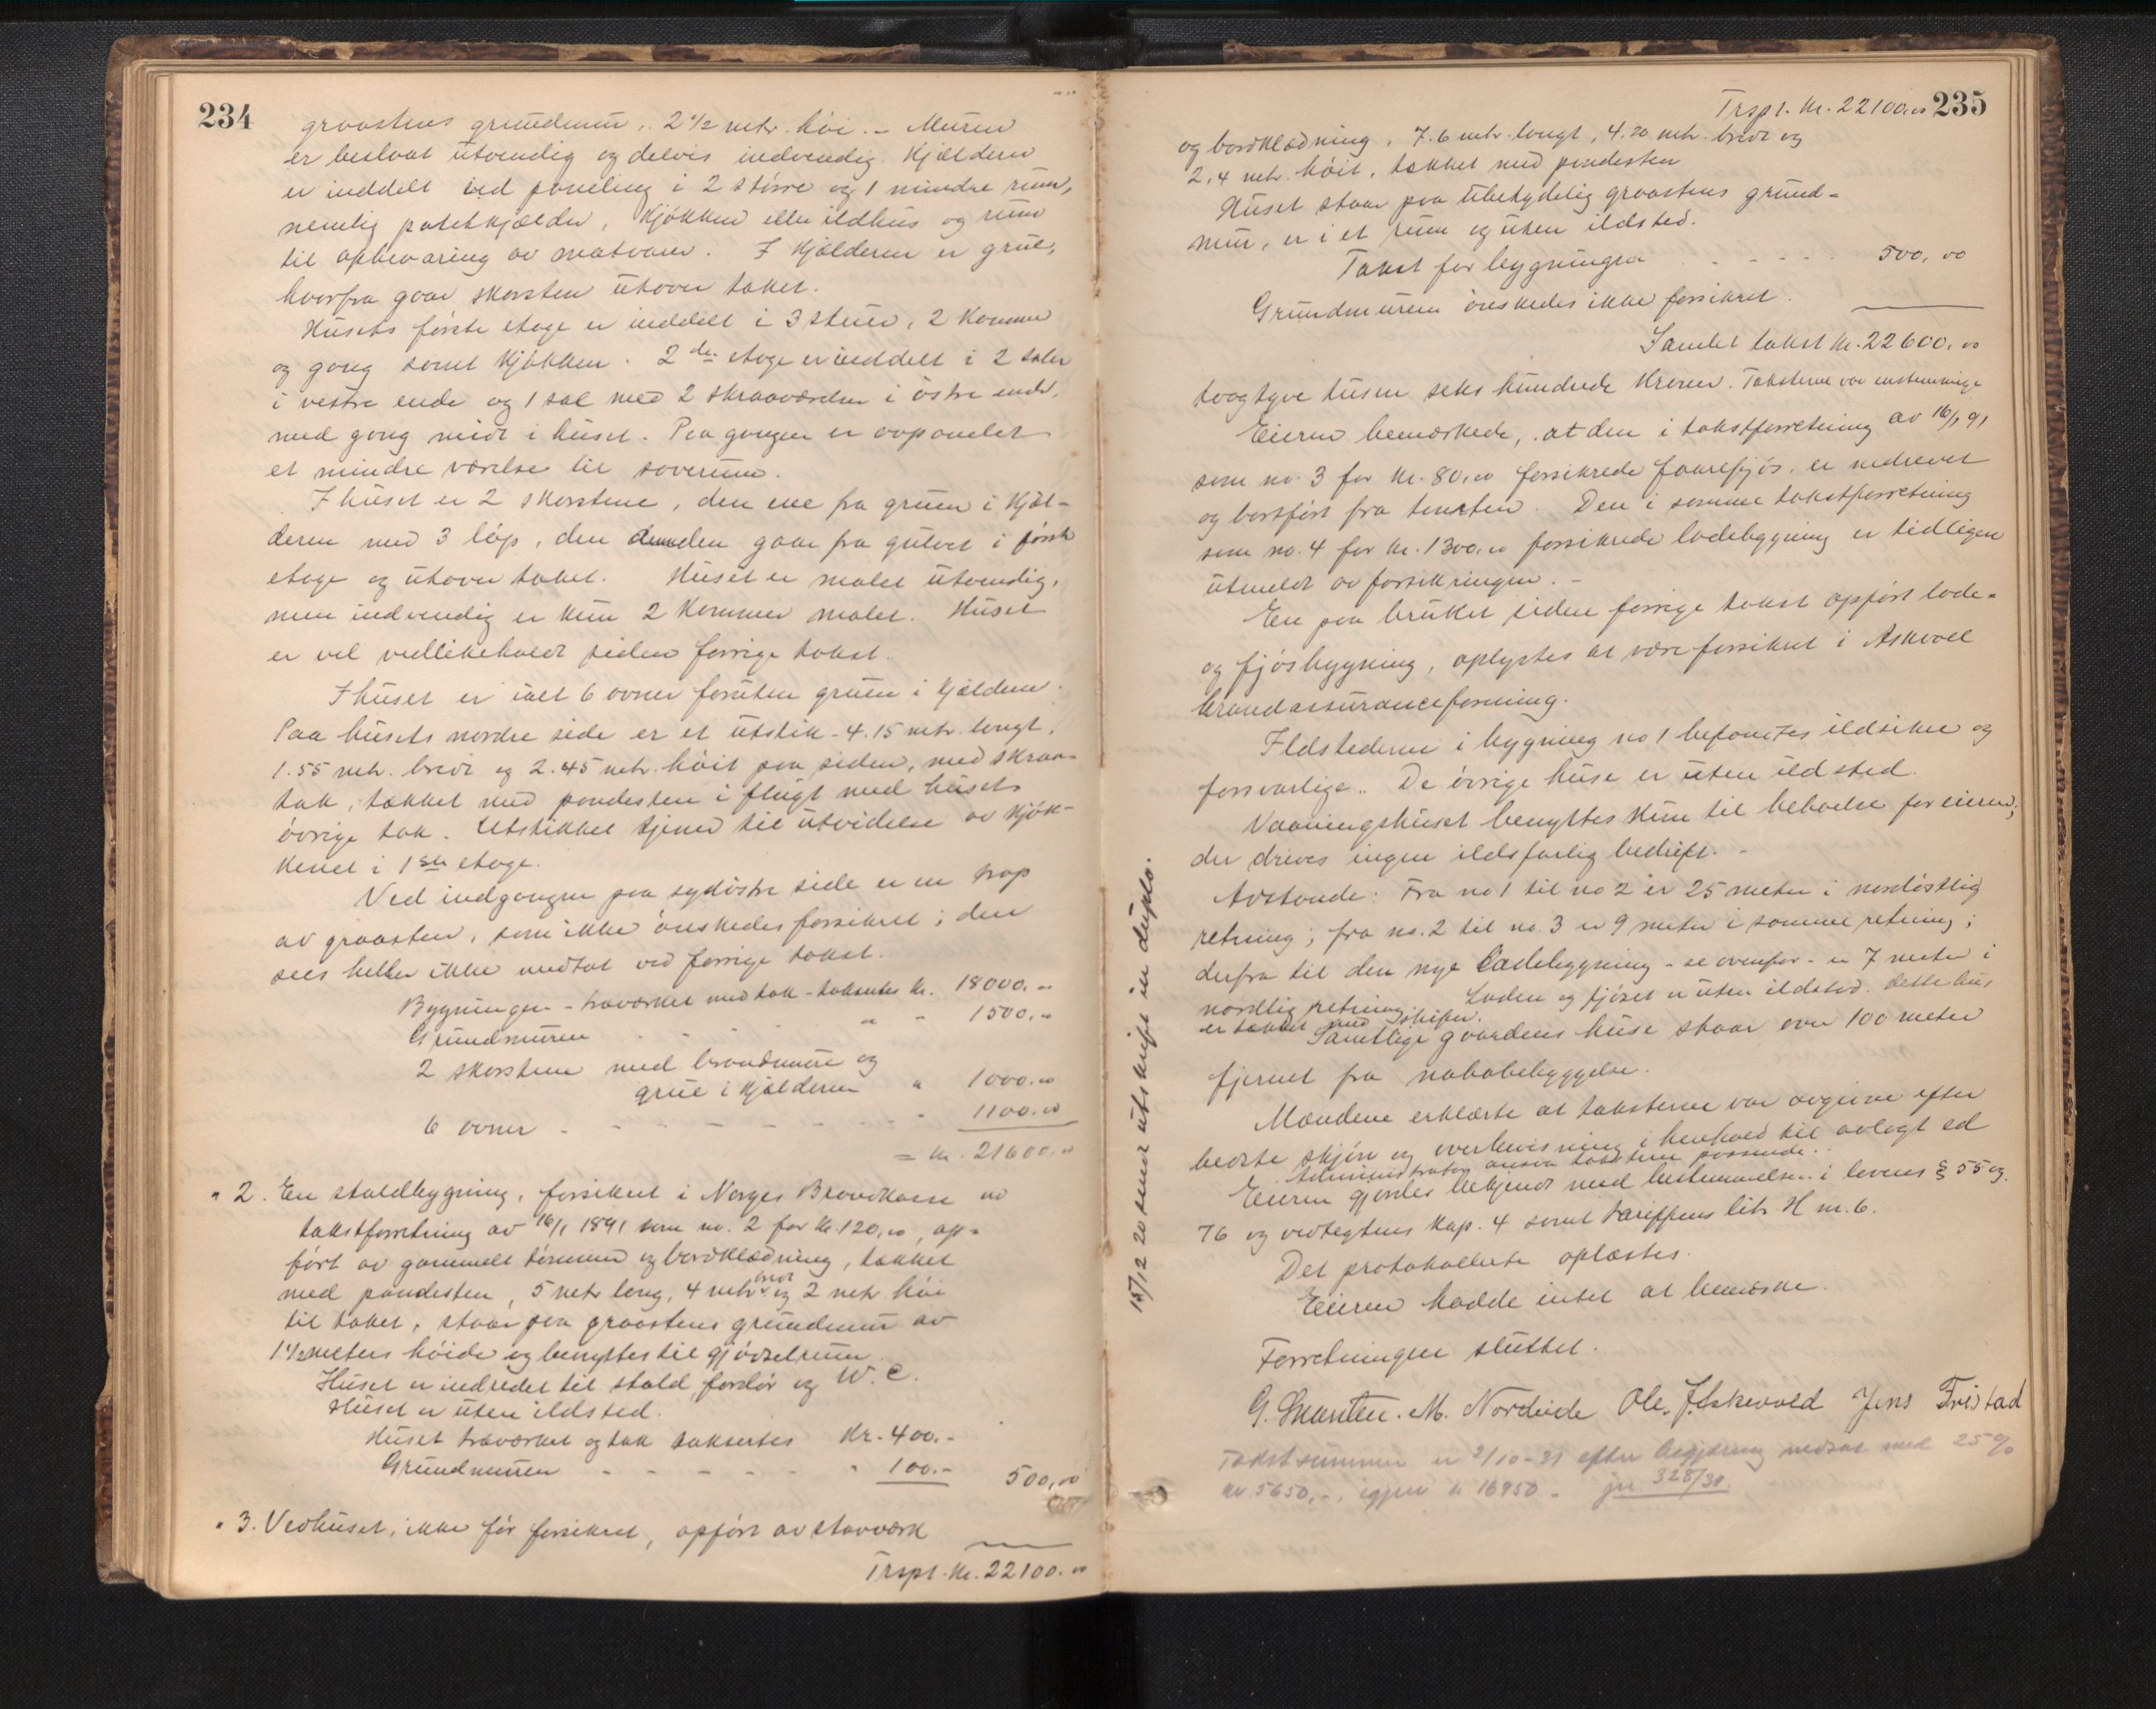 234
graastens grundmur, 2 1/2 metr. høi. – Muren
er beslaat utvendig og delvis indvendig. Kjælderen
er inddelt ved paneling i 2 større og 1 mindre rum,
nemlig potetkjælder, kjøkken eller ildhus og rum
til opbevaring av matvarer. I kjælderen er grue,
hvorfra gaar skorsten utover taket.
Husets første etage er inddelt i 3 stuer, 2 kammer
og gang samt kjøkken. 2den etage er inddelt i 2 saler
i vestre ende og 1 sal med 2 skraaværelser i østre ende,
med gang midt i huset. Paa gangen er avpanelet
et mindre værelse til soverum.
I huset er 2 skorstene, den ene fra gruen i kjæl-
deren med 3 løp, den anden gaar fra gulvet i første
etage og utover taket. Huset er malet utvendig,
men indvendig er kun 2 kammer malet. Huset
er vel vedlikeholdt siden forrige takst.
I huset er ialt 6 ovner foruten gruen i kjælderen.
Paa husets nordre side er et utstik – 4.15 metr. langt,
1.55 metr. bredt og 2.45 metr. høit paa siden, med skraa-
tak, tækket med pandesten i flugt med husets
øvrige tak. Utstikket tjener til utvidelse av kjøk-
kenet i 1ste etage.
Ved indgangen paa sydøstre side er en trap
av graasten, som ikke ønskedes forsikret; den
sees heller ikke medtat ved forrige takst.
Bygningen – træverket med tak – taksertes kr. 18000.–
Grundmuren " – 1500.–
2 skorstene med brandmure og
grue i kjælderen " 1000.00
6 ovner – – – – – – 1100.00
= kr. 21600.00
" 2. En staldbygning, forsikret i Norges Brandkasse ved
takstforretning av 16/1 1891 som no. 2 for kr. 120,00, op-
ført av gammelt tømmer og bordklædning, tækket
med pandesten, 5 metr lang, 4 metr bred og 2 metr høi
til taket, staar paa graastens grundmur av
1 1/2 meters høide og benyttes til gjødselrum.
Huset er indredet til stald, fordør og W.C.
Huset er uten ildsted.
Huset træværket og tak taksertes kr. 400.–
Grundmuren – – – – – " 100.– 500,00
" 3. Vedhuset, ikke før forsikret, opført av stavværk
Trspt. kr. 22100.00
Trspt. kr. 22100.00 235
og bordklædning, 7.6 metr. langt, 4.20 metr. bredt og
2.4 metr. høit, tækket med pandesten
Huset staar paa ubetydelig graastens grund-
mur, er i et rum og uten ildsted.
Takst for bygningen – – – – – 500,00
Grundmuren ønskedes ikke forsikret.
Samlet takst kr. 22600,00
toogtyve tusen seks hundrede kroner. Taksterne var enstemmige
Eieren bemerkede, at den i takstforretning av 16/1 91
som no. 3 for kr. 80,00 forsikrede faarefjøs, er nedrevet
og bortført fra tomten. Den i samme takstforretning
som no. 4 for kr. 1300,00 forsikrede ladebygning er tidligere
utmeldt av forsikringen. –
En paa bruket siden forrige takst opført lade-
og fjøsbygning, oplystes at være forsikret i Askvoll
brandassuranceforening.
Ildstederne i bygning no 1 befantes ildsikre og
forsvarlige. De øvrige huse er uten ildsted.
Vaaningshuset benyttes kun til beboelse for eieren;
der drives ingen ildsfarlig bedrift. –
Avstande: Fra no 1 til no 2 er 25 meter i nordøstlig
retning; fra no. 2 til no. 3 er 9 meter i samme retning;
derfra til den nye Ladebygning – se ovenfor – er 7 meter i
nordlig retning. Laden og fjøset er uten ildsted. Dette hus
er tækket med skifer.
Samtlige gaardens huse staar over 100 meter
fjernet fra nabobebyggelse.
Mændene erklærte at taksterne var avgivne efter
bedste skjøn og overbevisning i henhold til avlagt ed
Administrator ansaa taksterne passende.
Eieren gjordes bekjendt med bestemmelsen i lovens § 55 og
76 og vedtegtens kap. 4 samt tariffens litr. H nr. 6.
Det protokollerte oplæstes.
Eieren hadde intet at bemerke.
Forretningen sluttet.
G. M. Nordeide Ole J. Askevold Jens Tvistad
Takstsummen er 2/10-31 efter begjæring nedsat med 25%
kr 5650,–, igjen kr 16950.– jnr 328/31.
15/12 20 sendt utskrift in duplo.